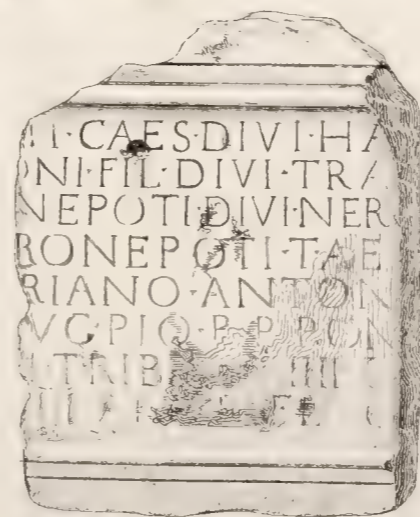 I·CAES·DIVI·HA
NI·FIL·DIVI·TRA
NEPOTI·DIVI·NER
RONEPOTI·T·AE
RIANO·ANTON
VG·PIO·P·P·PON
TRIB IIII
III